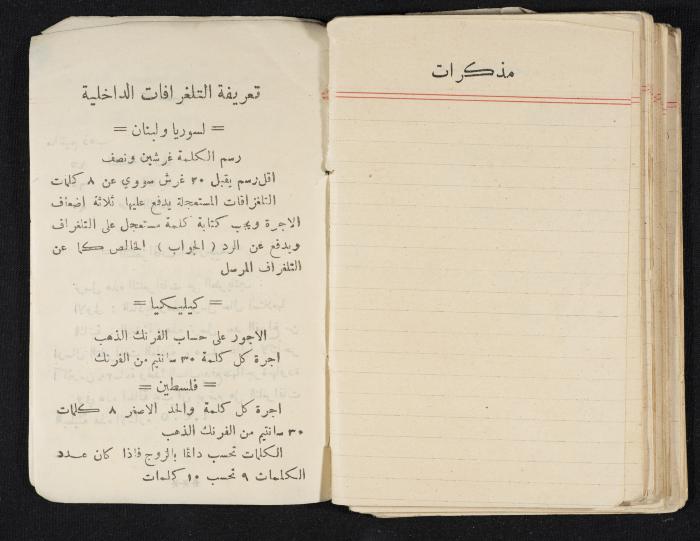 تعريفة التلغرافات الداخلية
= لسوريا ولبنان =
رسم الكلمة غرشين ونصف
اقل رسم يقبل ٣٠ غرش سوري عن ٨ كلمات
التلغرافات المستعجلة يدفع عليها ثلاثة اضعاف
الاجرة ويجب كتابة كلمة مستعجل على التلغراف
ويدفع عن الرد ( الجواب ) الخالص كما عن
التلغراف المرسل
= كيليكيا =
الاجور على حساب الفرنك الذهب
اجرة كل كلمة ٣٠ سانتيم من الفرنك
= فلسطين =
اجرة كل كلمة والحد الاصغر ٨ كلمات
٣٠ سانتيم من الفرنك الذهب
الكلمات تحسب دائما بالزوج فاذا كان عدد
الكلمات ٩ تحسب ١٠ كلمات
مذكرات